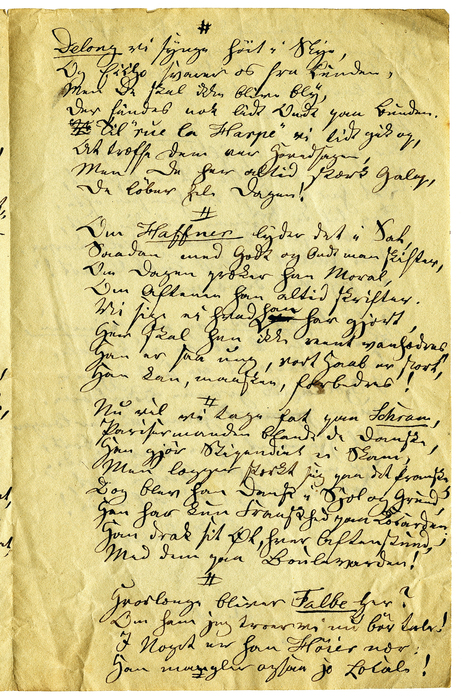 #
Delong vi synge høit i Skye,
Og Echo svarer os fra Lunden,
Men De skal ikke blive bly,
Der findes nok lidt Ondt paa Bunden.
Til "rue la Harpe" vi tidt gik op,
At træffe Dem var Hovedsagen,
Men De har altid stærk Galop,
De løber hele Dagen!
#
Om Haffner lyder det i Sal,
Saadan med Godt og Ondt man skifter,
Om Dagen prøker han Moral,
Om Aftenen han altid skrifter.
Vi sige ei hvad han har gjort,
Her skal han ikke vent vanhædres
Han er saa ung, vort Haab er stort,
Han kan, maaskee, forbedres!
#
Nu vil vi tage fat paa Schram,
Pariser manden blandt de Danske,
Han gjør Stipendiet ei Skam,
Men lægger stærkt sig paa det franske
Dog blev han Dansk i Sjæl og Grund,
Han har kun Franskhed paa
Han drak sit Øl, hver Aftenstund,
Med dem paa Boulevarden!
#
Hvorlænge bliver Falbe her?
Om ham jeg troer vi nu bør tale!
I Noget er han Høier nær:
Han mangler ogsaa jo Locale!